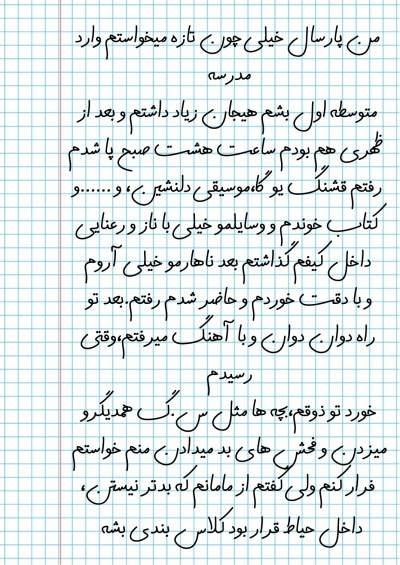 من پارسال خیلی چون تازه میخواستم وارد
مدرسه
متوسطه اول بشم هیجان زیاد داشتم و بعد از
ظهری هم بودم ساعت هشت صبح پا شدم
رفتم قشنگ یوگا،موسیقی دلنشین، و ......و
کتاب خوندم و وسایلمو خیلی با ناز و رعنایی
داخل کیفم گذاشتم بعد ناهارمو خیلی آروم
و با دقت خوردم و حاضر شدم رفتم.بعد تو
راه دوان دوان و با آهنگ میرفتم،وقتی
رسیدم
خورد تو ذوقم،بچه ها مثل س.گ همدیگرو
میزدن و فحش های بد میدادن منم خواستم
فرار کنم ولی گفتم از مامانم که بدتر نیستن،
داخل حیاط قرار بود کلاس بندی بشه